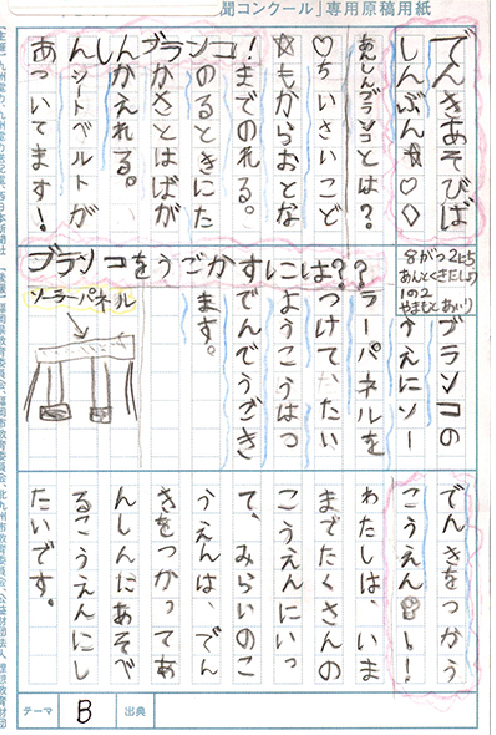 聞コンクール」専用原稿用紙
でんきあそびば
しんぶん☆♡◇
あんしんブランコ!
あんしんブランコとは?
♡ちいさいこど
☆もからおとな
までのれる。
のるときにた
かさとはばが
かえれる。
シートベルトが
ついてます!
8がつ2にち
あんとくきたしょう
1の2
やまもとあいり
ブランコをうごかすには??
ブランコの
うえにソー
ラーパネルを
つけて、たい
ようこうはつ
でんでうごき
ます。
ソーラーパネル
でんきをつかう
こうえんー!
わたしは、いま
までたくさんの
こうえんにいっ
て、みらいのこ
うえんは、でん
きをつかってあ
んしんにあそべ
るこうえんにし
たいです。
テーマ B 出典